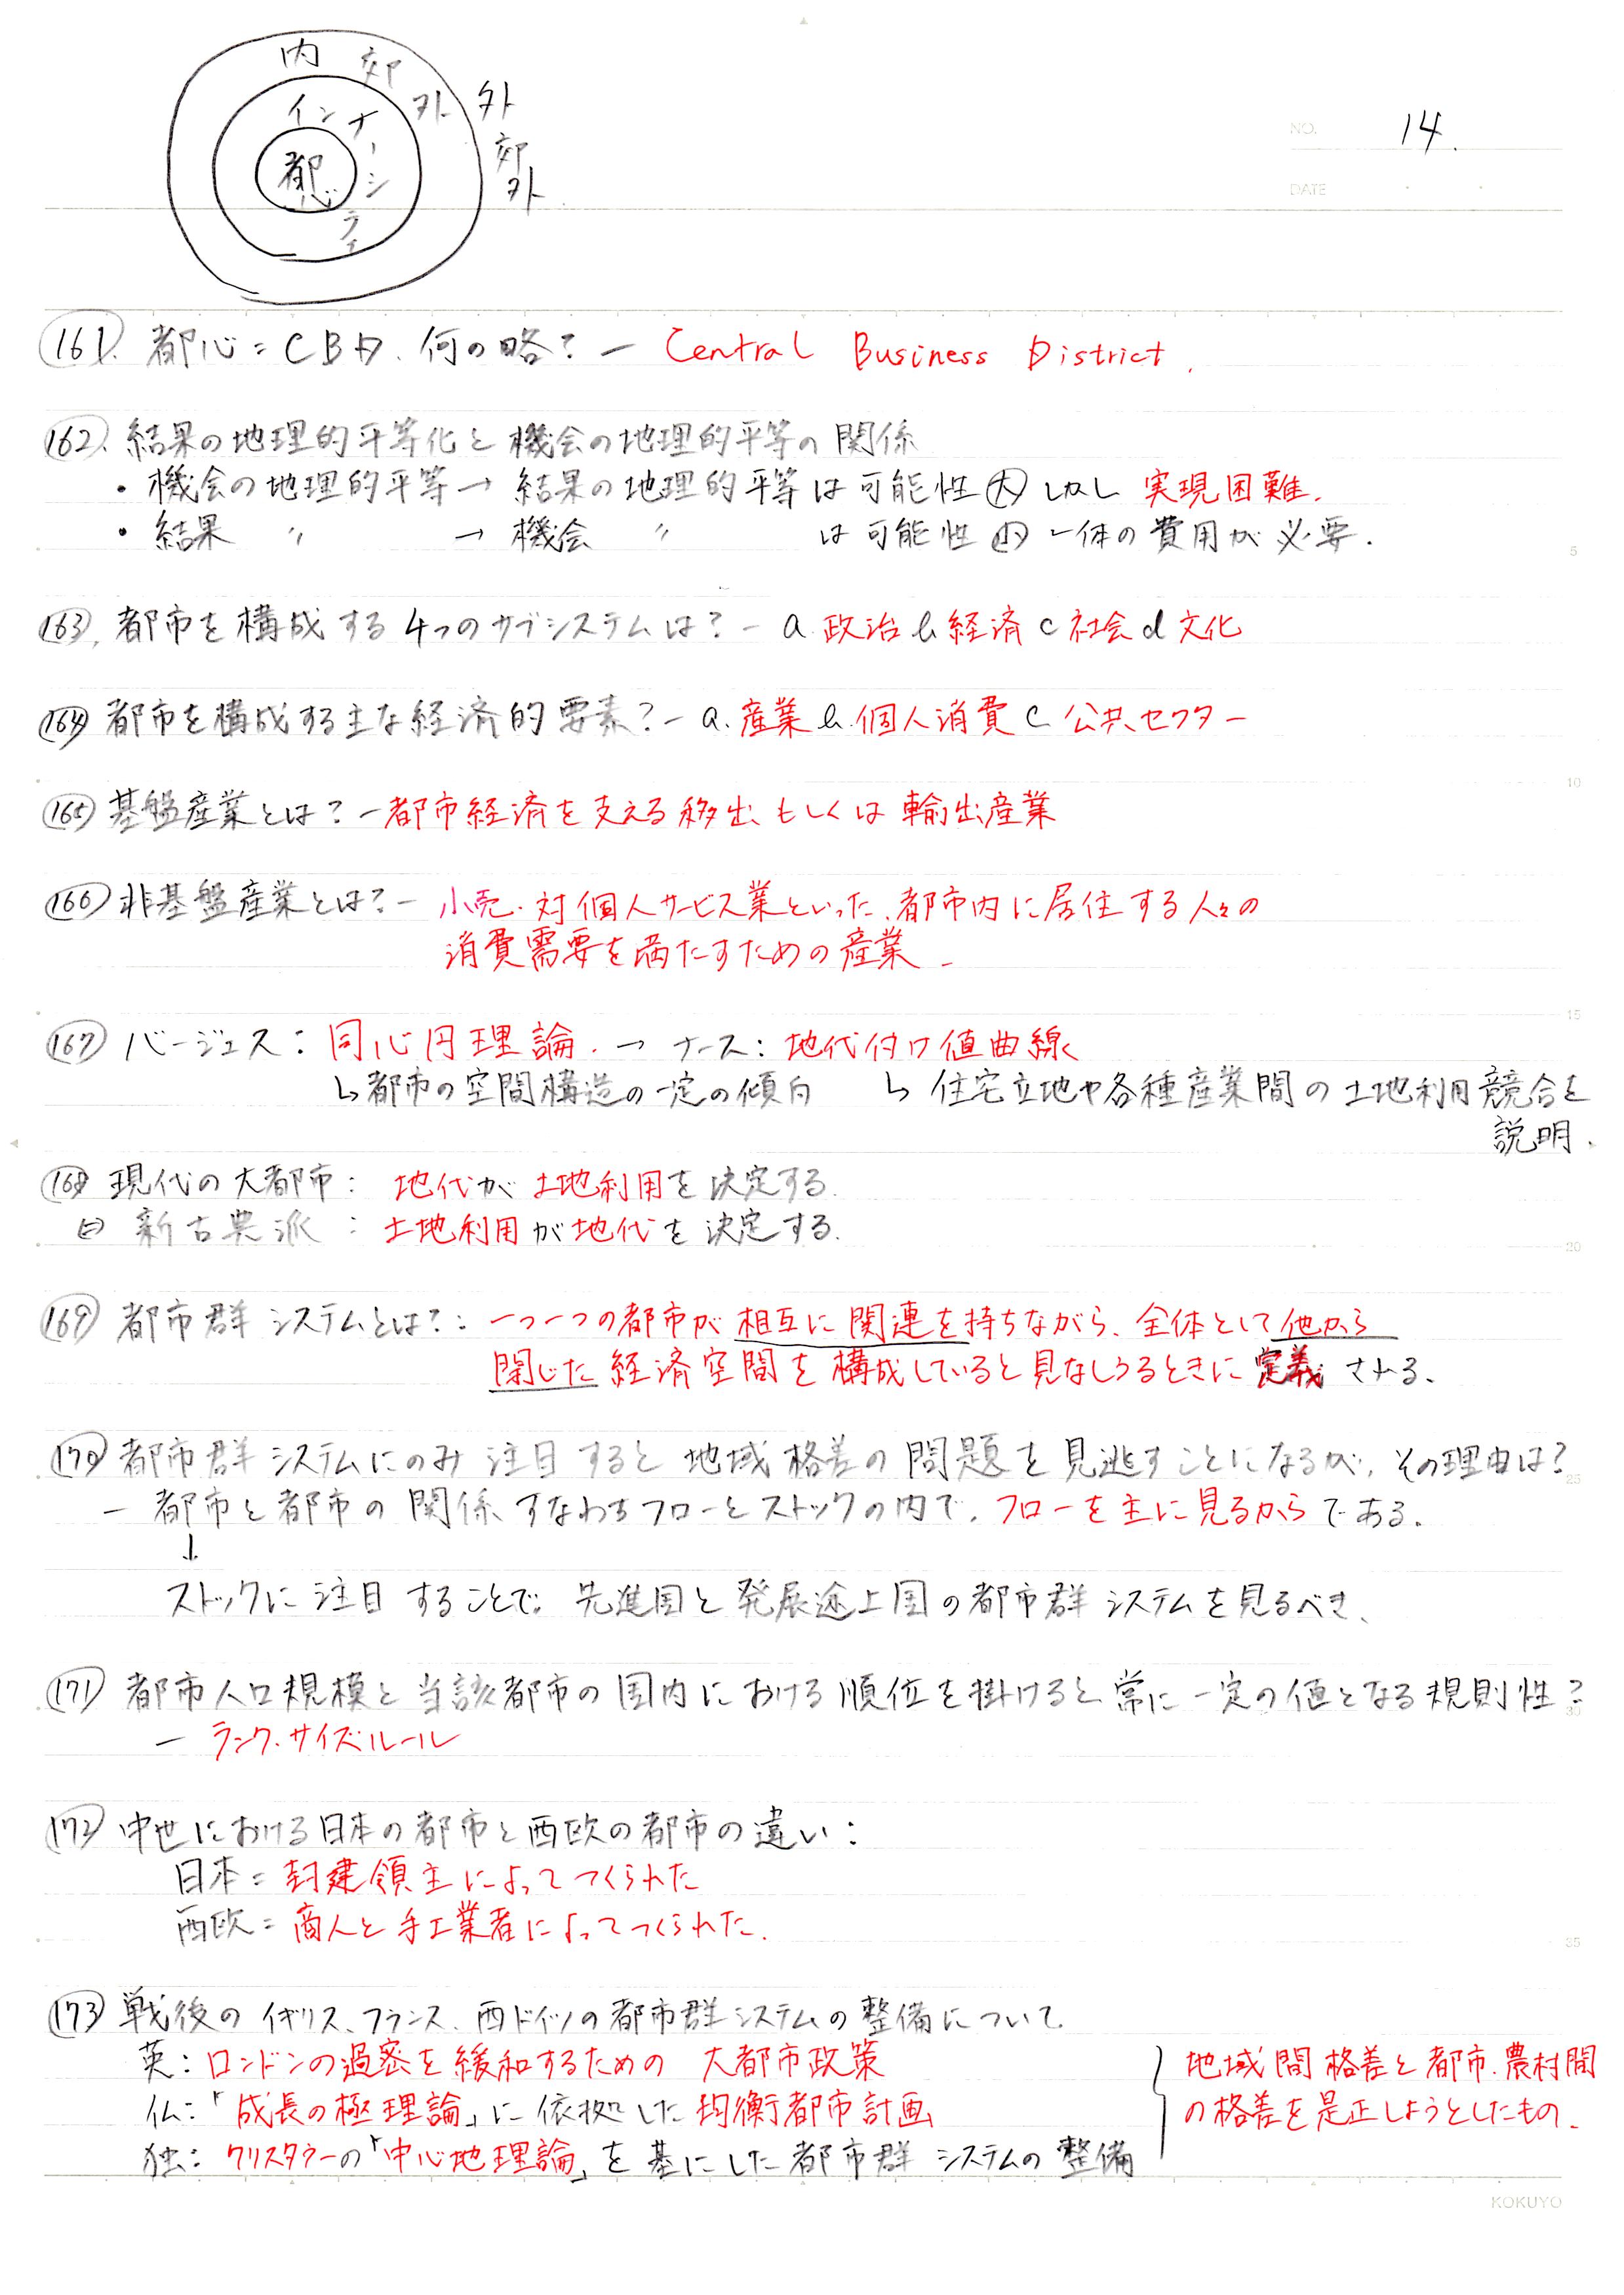 内郊外
外郊外
インナーシティ
都心
NO. 14.
DATE
(161). 都心=CBD. 何の略? ー Central Business District.
(162). 結果の地理的平等化と機会の地理的平等の関係
・機会の地理的平等→結果の地理的平等は可能性(大)しかし実現困難.
・結果 〃 →機会 〃 は可能性 一体の費用が必要.
5
(163). 都市を構成する4つのサブシステムは? ー a.政治 b.経済 c 社会 d 文化
(164) 都市を構成する主な経済的要素? ー a.産業 b.個人消費 c 公共セクター
10
(165) 基盤産業とは? ー都市経済を支える移出もしくは輸出産業
(166) 非基盤産業とは? ー 小売・対個人サービス業といった、都市内に居住する人々の
消費需要を満たすための産業
15
(167) バージェス:同心円理論. → ナース:地代付け値曲線
↳都市の空間構造の一定の傾向 ↳ 住宅立地や各種産業間の土地利用競合を
説明.
(168) 現代の大都市: 地代が土地利用を決定する.
新古典派 : 土地利用が地代を決定する.
20
(169) 都市群システムとは?: 一つ一つの都市が相互に関連を持ちながら、全体として他から
閉じた経済空間を構成していると見なしうるときに定義される.
(170) 都市群システムにのみ注目すると地域格差の問題を見逃すことになるが、その理由は?
25
ー 都市と都市の関係すなわちフローとストックの内で、フローを主に見るからである.
↓
ストックに注目することで、先進国と発展途上国の都市群システムを見るべき、
(171) 都市人口規模と当該都市の国内における順位を掛けると常に一定の値となる規則性?
30
ー ランク・サイズルール
(172) 中世における日本の都市と西欧の都市の違い:
日本=封建領主によってつくられた
西欧=商人と手工業者によってつくられた.
35
(173) 戦後のイギリス、フランス、西ドイツの都市群システムの整備について
英:ロンドンの過密を緩和するための 大都市政策
仏:「成長の極理論」に依拠した均衡都市計画
独:クリスタラーの「中心地理論」を基にした都市群システムの整備
地域間格差と都市・農村間
の格差を是正しようとしたもの.
KOKUYO